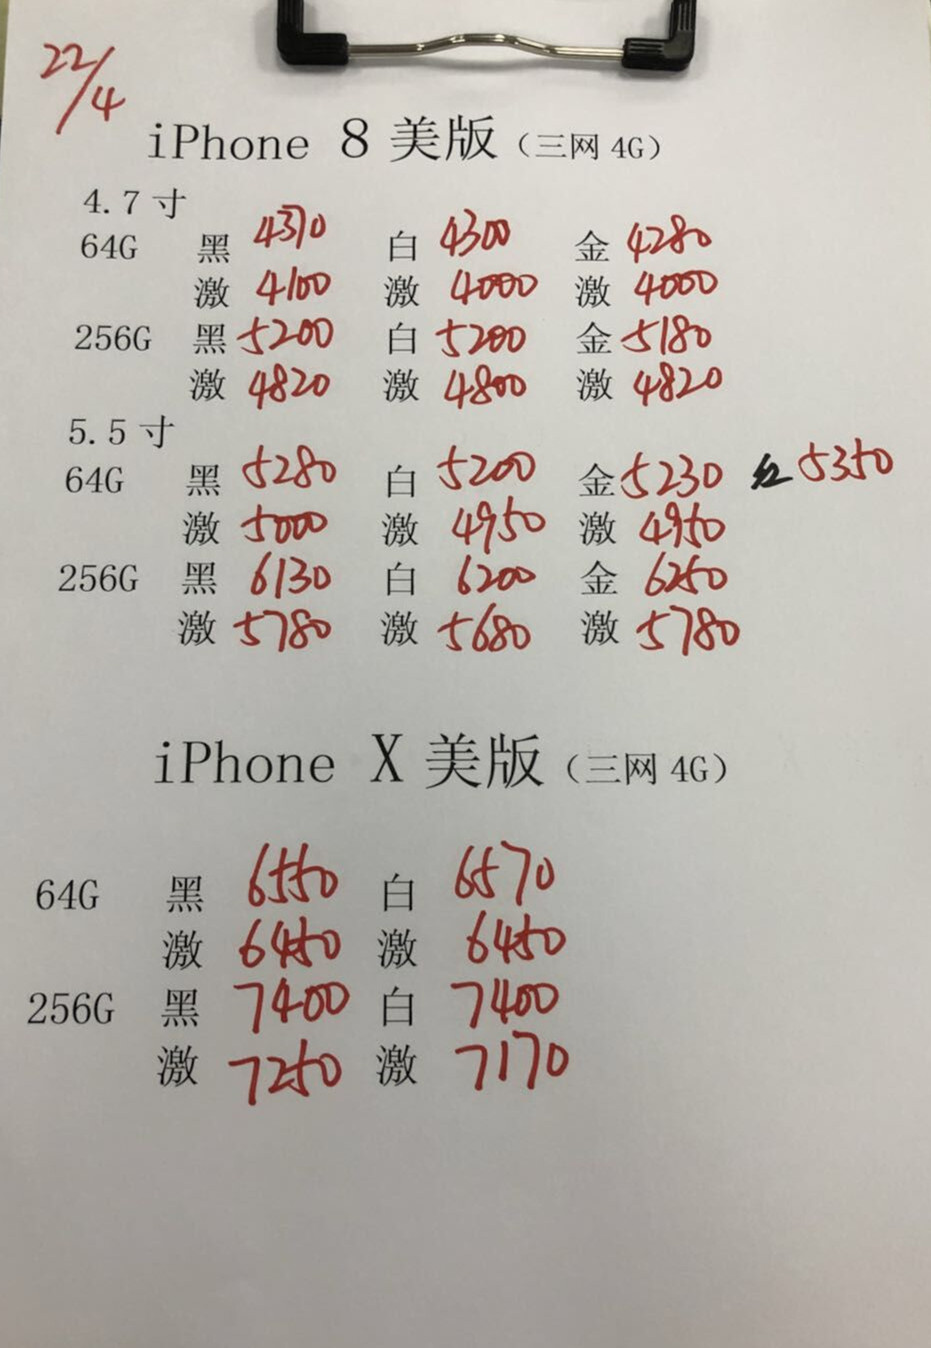 22/4
iPhone 8 美版（三网 4G）
4.7 寸
64G 黑 4370 白 4300 金 4280
激 4100 激 4000 激 4000
256G 黑 5200 白 5200 金 5180
激 4820 激 4800 激 4820
5.5 寸
64G 黑 5280 白 5200 金 5230 红 5350
激 5000 激 4950 激 4950
256G 黑 6130 白 6200 金 6250
激 5780 激 5680 激 5780
iPhone X 美版（三网 4G）
64G 黑 6550 白 6570
激 6450 激 6450
256G 黑 7400 白 7400
激 7250 激 7170